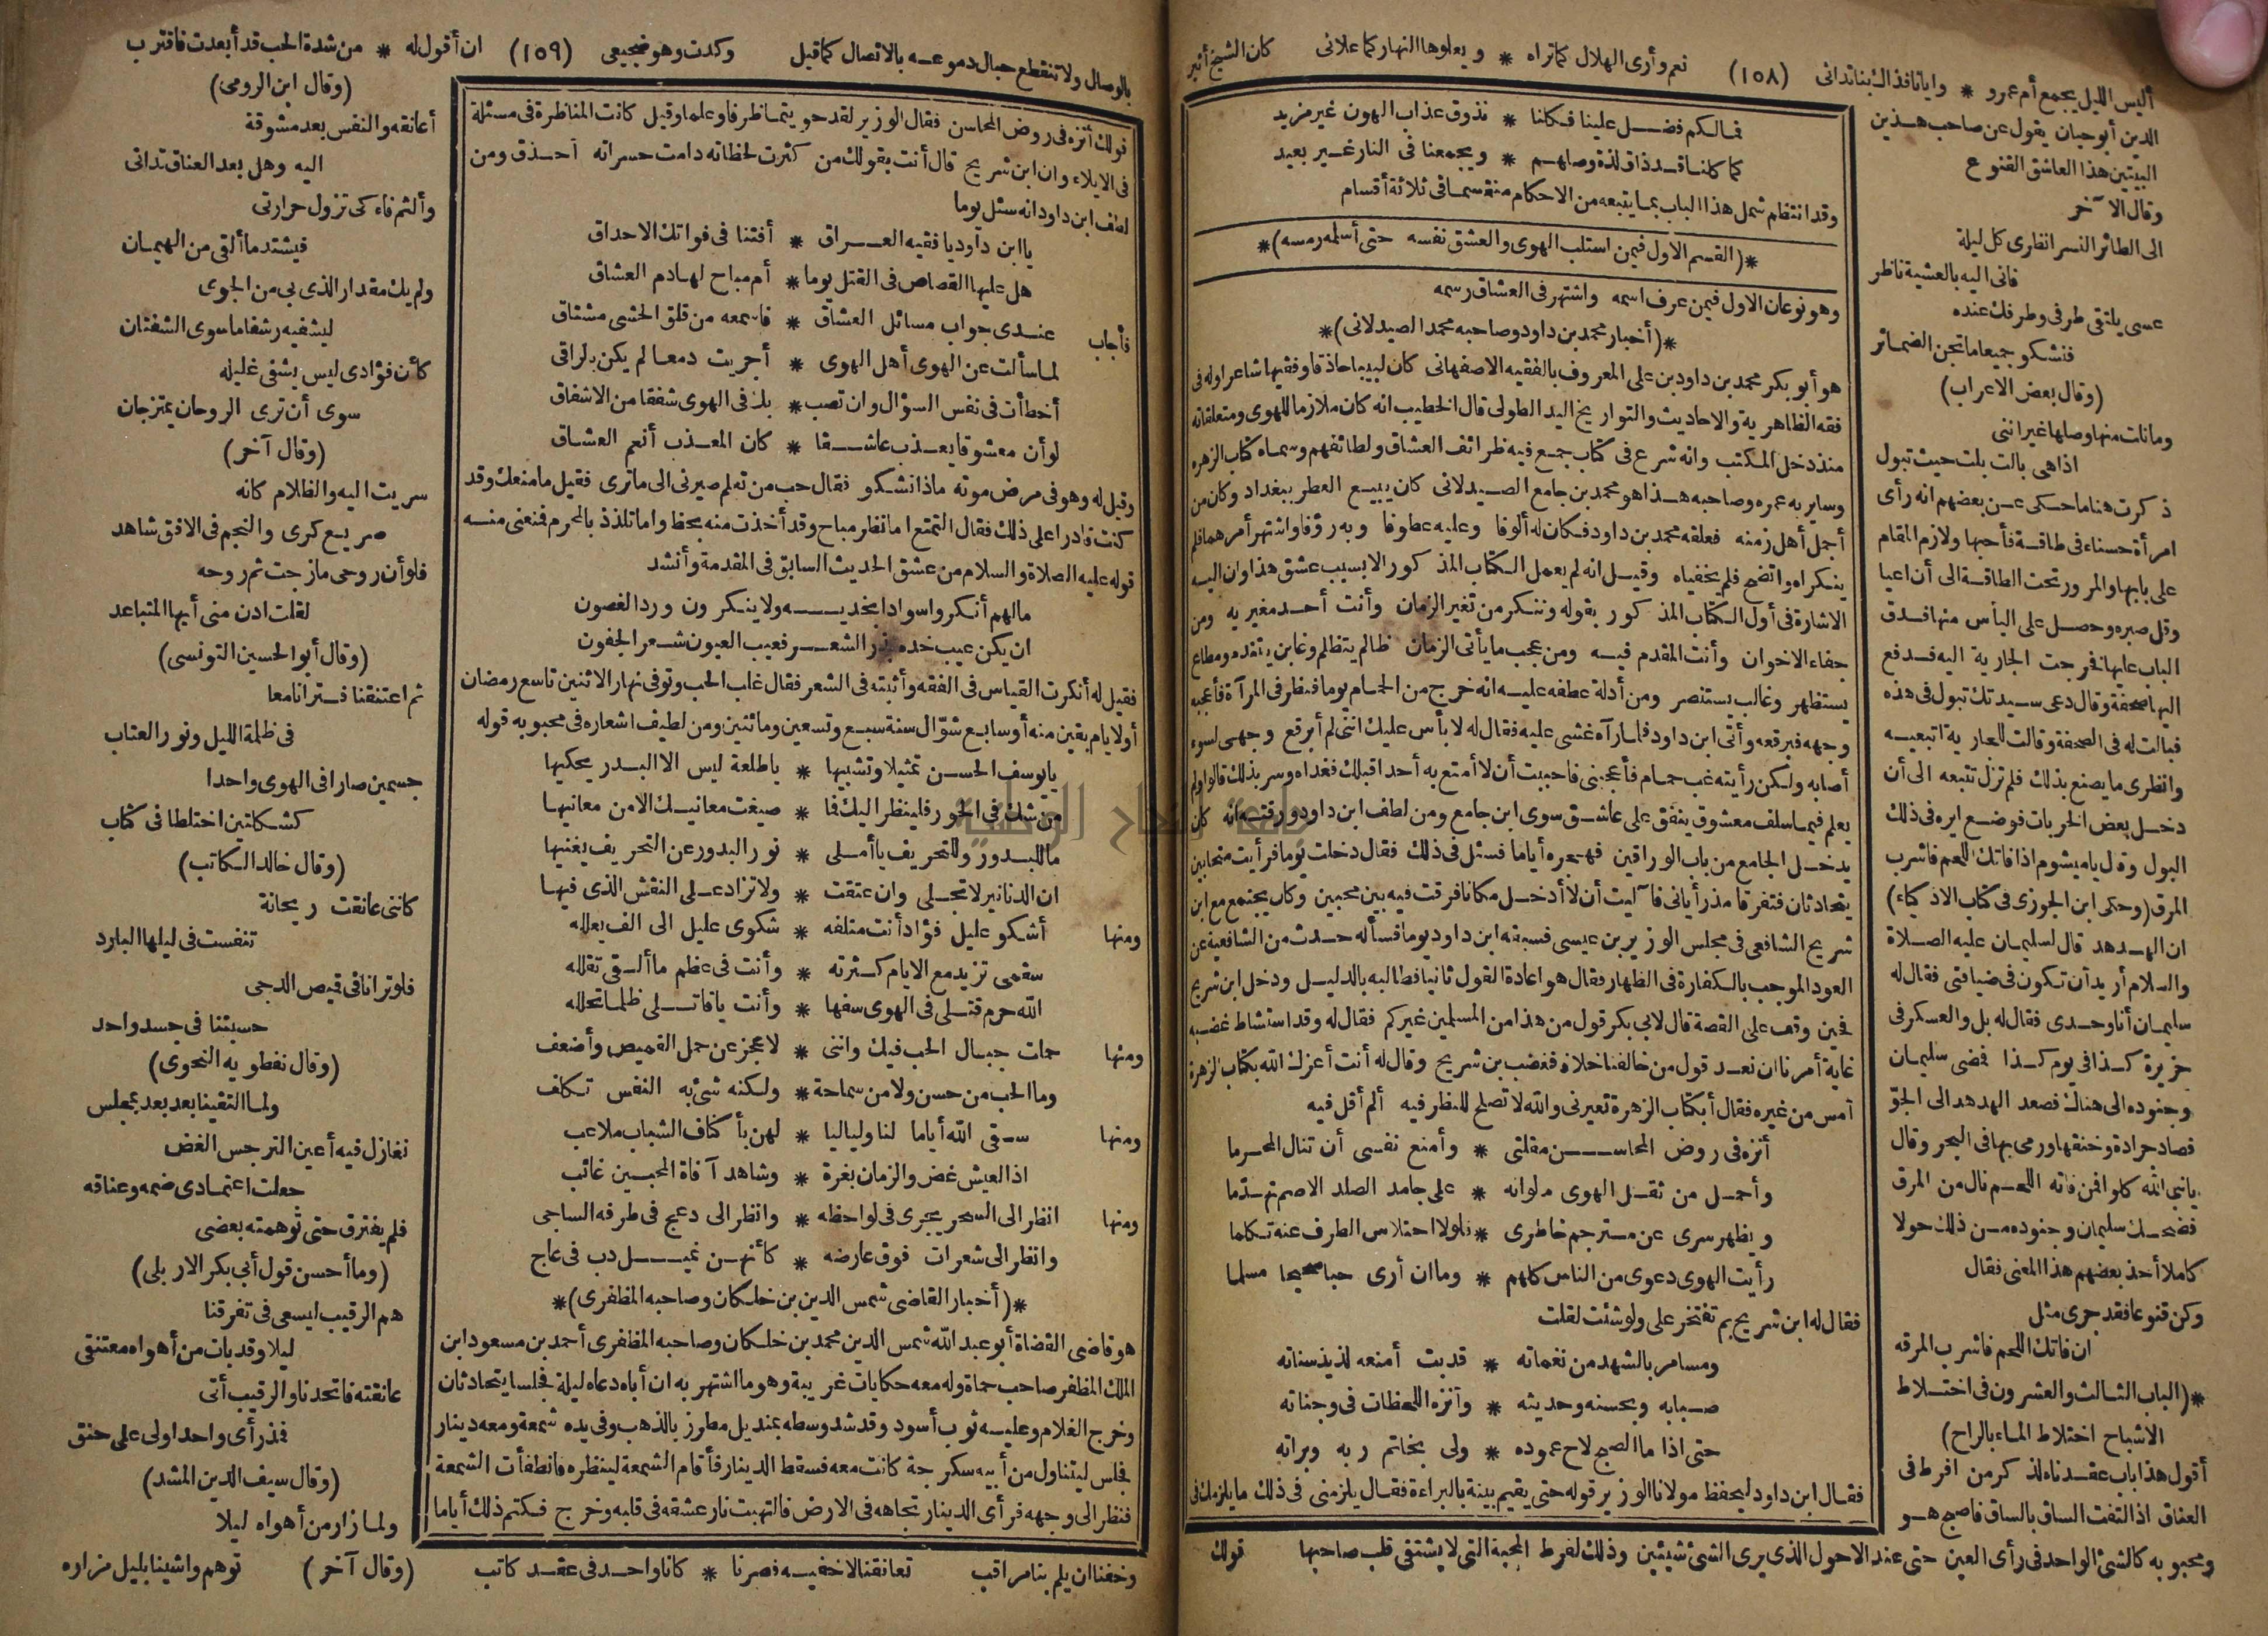 أليس الليل يجمع أم عمرو * وايانا فذاك بنا تدانى (١٥٨) نعم وأرى الهلال كما تراه * ويعلوها النهار كما علانى كان الشيخ أثير
الدين أبو حيان يقول عن صاحب هذين
البيتين هذا العاشق القنوع
وقال الآخر
الى الطائر النسر انظرى كل ليلة
فانى اليه بالعشية ناظر
عسى يلتقى طرفى وطرفك عنده
فنشكو جميعا ما تجن الضمائر
(وقال بعض الاعراب)
وما نلت منها وصلها غير اننى
اذا هى بالت بلت حيث تبول
ذكرت هنا ما حكى عن بعضهم انه رأى
امرأة حسناء فى طاقة فأحبها ولازم المقام
على بابها والمرور تحت الطاقة الى أن اعيا
وقل صبره وحصل على اليأس منها فدق
الباب عليها فخرجت الجارية اليه فدفع
اليها صحفة وقال دعى سيدتك تبول فى هذه
فبالت له فى الصحفة وقالت للجارية اتبعيه
وانظرى ما يصنع بذلك فلم تزل تتبعه الى أن
دخل بعض الخربات فوضع ايره فى ذلك
البول وقال يا ميشوم اذا فاتك اللحم فاشرب
المرق (وحكى ابن الجوزى فى كتاب الاذكياء)
ان الهدهد قال لسليمان عليه الصلاة
والسلام أريد أن تكون فى ضيافتى فقال له
سليمان أنا وحدى فقال له بل والعسكر فى
جزيرة كذا فى يوم كذا فمضى سليمان
وجنوده الى هناك فصعد الهدهد الى الجو
فصاد جرادة وخنقها ورمى بها فى البحر وقال
يا نبى الله كلوا فمن فاته اللحم نال من المرق
فضحك سليمان وجنوده من ذلك حولا
كاملا أخذ بعضهم هذا المعنى فقال
وكن قنوعا فقد جرى مثل
ان فاتك اللحم فاشرب المرقه
*(الباب الثالث والعشرون فى اختلاط
الاشباح اختلاط الماء بالراح)
أقول هذا باب عقدناه لذكر من افرط فى
العناق اذا التفت الساق بالساق فاصبح هو
ومحبوبه كالشئ الواحد فى رأى العين حتى عند الاحول الذى يرى الشئ شيئين وذلك لفرط المحبة التى لا يشتفى قلب صاحبها
فما لكم فضل علينا فكلنا * نذوق عذاب الهون غير مزيد
كما كلنا قد ذاق لذة وصلهم * ويجمعنا فى النار غير بعيد
وقد انتظم شمل هذا الباب بما يتبعه من الاحكام منقسما فى ثلاثة أقسام
*(القسم الاول فيمن استلب الهوى والعشق نفسه حتى أسلمه رمسه)*
وهو نوعان الاول فيمن عرف اسمه واشتهر فى العشاق رسمه
*(أخبار محمد بن داود وصاحبه محمد الصيدلانى)*
هو أبو بكر محمد بن داود بن على المعروف بالفقيه الاصفهانى كان لبيبا حاذقا وفقيها شاعرا وله فى
فقه الظاهرية والاحاديث والتواريخ اليد الطولى قال الخطيب انه كان ملازما للهوى ومتعلقاته
منذ دخل المكتب وانه شرع فى كتاب جمع فيه ظرائف العشاق ولطائفهم وسماه كتاب الزهره
وساير به عمره وصاحبه هذا هو محمد بن جامع الصيدلانى كان يبيع العطر ببغداد وكان من
أجمل أهل زمنه فعلقه محمد بن داود فكان له ألوفا وعليه عطوفا وبه رؤفا واشتهر أمرهما فلم
ينكراه واتضح فلم يخفياه وقيل انه لم يعمل الكتاب المذكور الا بسبب عشق هذا وان اليه
الاشارة فى أول الكتاب المذكور بقوله وننكر من تغير الزمان وأنت أحد مغيريه ومن
جفاء الاخوان وأنت المقدم فيه ومن عجب ما يأتى الزمان ظالم يتظلم وغابن يتقدم ومطاع
يستظهر وغالب يستنصر ومن أدلة عطفه عليه انه خرج من الحمام يوما فينظر فى المرآة فأعجبه
وجهه فبرقعه وأتى ابن داود فلما رآه غشى عليه فقال له لا بأس عليك اننى لم أبرقع وجهى لسوء
أصابه ولكن رأيته غب حمام فأعجبنى فاحببت أن لا أمتع به أحدا قبلك فغداه وسر بذلك قالوا ولم
يعلم فيما سلف معشوق ينفق على عاشق سوى ابن جامع ومن لطف ابن داود ورقته انه كان
يدخل الجامع من باب الوراقين فهجره أياما فسئل فى ذلك فقال دخلت يوما فرأيت متحابين
يتحادثان فتفرقا مذ رأيانى فآليت أن لا أدخل مكانا فرقت فيه بين محبين وكان يجتمع مع ابن
شريح الشافعى فى مجلس الوزير بن عيسى فسبقه ابن داود يوما فسأله حدث من الشافعية عن
العود الموجب بالكفارة فى الظهار فقال هو اعادة القول ثانيا فطالبه بالدليل ودخل ابن شريح
فحين وقف على القصة قال لابى بكر قول من هذا من المسلمين غيركم فقال له وقد استشاط غضبه
غاية أمرنا ان نعد قول من خالفنا خلاه فغضب بن شريح وقال له أنت أعزك الله بكتاب الزهرة
أمس من غيره فقال أبكتاب الزهرة تعيرنى والله لا تصلح للنظر فيه ألم أقل فيه
أنزه فى روض المحاسن مقلتى * وأمنع نفسى أن تنال المحرما
وأحمل من ثقل الهوى ما لو انه * على جامد الصلد الاصم تهدما
ويظهر سرى عن مترجم خاطرى * فلولا اختلاس الطرف عنه تكلما
رأيت الهوى دعوى من الناس كلهم * وما ان أرى حبا صحيحا مسلما
فقال له ابن شريح بم تفتخر على ولو شئت لقلت
ومسامر بالشهد من نغماته * قد بت أمنعه لذيذ سناته
صبابه وبحسنه وحديثه * وأنزه اللحظات فى وجناته
حتى اذا ما الصبح لاح عموده * ولى بخاتم ربه وبراته
فقال ابن داود ليحفظ مولانا الوزير قوله حتى يقيم بينة بالبراءة فقال يلزمنى فى ذلك ما يلزمك فى
قولك
بالوصال ولا تنقطع حبال دموعه بالاتصال كما قيل وكدت وهو ضجيعى (١٥٩) ان أقول له * من شدة الحب قد أبعدت فاقترب
قولك أنزه فى روض المحاسن فقال الوزير لقد حويتما ظرفا وعلما وقيل كانت المناظرة فى مسئلة
فى الايلاء وان ابن شريح قال أنت بقولك من كثرت لحظاته دامت حسراته أحذق ومن
لطف ابن داود انه سئل يوما
يا ابن داود يا فقيه العراق * أفتنا فى فواتك الاحداق
هل عليها القصاص فى القتل يوما * أم مباح لها دم العشاق
فأجاب
عندى جواب مسائل العشاق * فاسمعه من قلق الحشى مشتاق
لما سألت عن الهوى أهل الهوى * أجريت دمعا لم يكن بالراقى
أخطأت فى نفس السؤال وان تصب * بك فى الهوى شفقا من الاشفاق
لو أن معشوقا يعذب عاشقا * كان المعذب أنعم العشاق
وقيل له وهو فى مرض موته ماذا تشكو فقال حب من تعلم صيرنى الى ما ترى فقيل ما منعك وقد
كنت قادرا على ذلك فقال التمتع اما نظر مباح وقد أخذت منه بحظ واما تلذذ بالمحرم فمنعنى منه
قوله عليه الصلاة والسلام من عشق الحديث السابق فى المقدمة وأنشد
ما لهم أنكروا سوادا بخديه ولا ينكرون ورد الغصون
ان يكن عيب خده بذر الشعر فعيب العيون شعر الجفون
فقيل له أنكرت القياس فى الفقه وأثبته فى الشعر فقال غلب الحب وتوفى نهار الاثنين تاسع رمضان
أو لايام بقين منه أو سابع شوال سنة سبع وتسعين ومائتين ومن لطيف اشعاره فى محبوبه قوله
يا يوسف الحسن تمثيلا وتشبيها * يا طلعة ليس الا البدر يحكيها
من شك فى الحور فلينظر اليك فما * صيغت معانيك الا من معانيها
ما للبدور وللتحريف يا أملى * نور البدور عن التحريف يغنيها
ان الدنانير لا تجلى وان عتقت * ولا تزاد على النقش الذى فيها
ومنها
أشكو عليل فؤاد أنت متلفه * شكوى عليل الى الف يعلله
سقمى تزيد مع الايام كثرته * وأنت فى عظم ما ألقى تقلله
الله حرم قتلى فى الهوى سفها * وأنت يا قاتلى ظلما تحلله
ومنها
حملت جبال الحب فيك واننى * لاعجز عن حمل القميص وأضعف
وما الحب من حسن ولا من سماحة * ولكنه شئ به النفس تكلف
ومنها
سقى الله أياما لنا ولياليا * لهن بأكناف الشباب ملاعب
اذ العيش غض والزمان بغرة * وشاهد آفاة المحبين غائب
ومنها
انظر الى السحر يجرى فى لواحظه * وانظر الى دعج فى طرفه الساجى
وانظر الى شعرات فوق عارضه * كأنهن نمل دب فى عاج
*(أخبار القاضى شمس الدين بن خلكان وصاحبه المظفرى)*
هو قاضى القضاة أبو عبد الله شمس الدين محمد بن خلكان وصاحبه المظفرى أحمد بن مسعود ابن
الملك المظفر صاحب حماة وله معه حكايات غريبة وهو ما اشتهر به ان أباه دعاه ليلة فجلسا يتحادثان
وخرج الغلام وعليه ثوب أسود وقد شد وسطه بمنديل مطرز بالذهب وفى يده شمعة ومعه دينار
فجلس ليتناول من أبيه سكرجة كانت معه فسقط الدينار فأقام الشمعة لينظره فانطفأت الشمعة
فنظر الى وجهه فرأى الدينار تجاهه فى الارض فالتهبت نار عشقه فى قلبه وخرج فكتم ذلك أياما
(وقال ابن الرومى)
أعانقه والنفس بعد مشوقة
اليه وهل بعد العناق تدانى
وألثم فاه كى تزول حرارتى
فيشتد ما ألقى من الهيمان
ولم يك مقدار الذى بى من الجوى
ليشفيه رشفا ما سوى الشفتان
كأن فؤادى ليس يشفى غليله
سوى أن ترى الروحان يمتزجان
(وقال آخر)
سريت اليه والظلام كانه
صريع كرى والنجم فى الافق شاهد
فلو أن روحى مازجت ثم روحه
لقلت ادن منى أيها المتباعد
(وقال أبو الحسين التونسى)
ثم اعتنقنا فترانا معا
فى ظلمة الليل ونور العتاب
جسمين صارا فى الهوى واحدا
كشكلتين اختلطا فى كتاب
(وقال خالد الكاتب)
كاننى عانقت ريحانة
تنفست فى ليلها البارد
فلو ترانا فى قميص الدجى
حسبتنا فى جسد واحد
(وقال نفطويه النحوى)
ولما التقينا بعد بعد بمجلس
نغازل فيه أعين النرجس الغض
جعلت اعتمادى ضمه وعناقه
فلم يفترق حتى توهمته بعضى
(وما أحسن قول أبى بكر الاربلى)
هم الرقيب ليسعى فى تفرقنا
ليلا وقد بات من أهواه معتنقى
عانقته فاتحدنا والرقيب أتى
فذ رأى واحدا ولى على حنق
(وقال سيف الدين المشد)
ولما زار من أهواه ليلا
وخفنا ان يلم بنا مراقب تعانقنا لاخفيه فصرنا * كانا واحد فى عقد كاتب (وقال آخر) توهم واشينا بليل مزاره